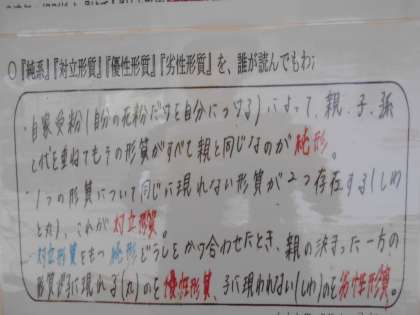 ○『純系』『対立形質』『優性形質』『劣性形質』を、誰が読んでもわ
・自家受粉(自分の花粉だけを自分につける)によって、親、子、孫
と代を重ねてもその形質がすべて親と同じなのが純形。
・1つの形質について、同じに現れない形質が2つ存在する(しわ
と丸)、これが対立形質。
・対立形質をもつ純形どうしをかけ合わせたとき、親の決まった一方の
形質が子に現れる(丸)のを優性形質、子に現われない(しわ)のを劣性形質。